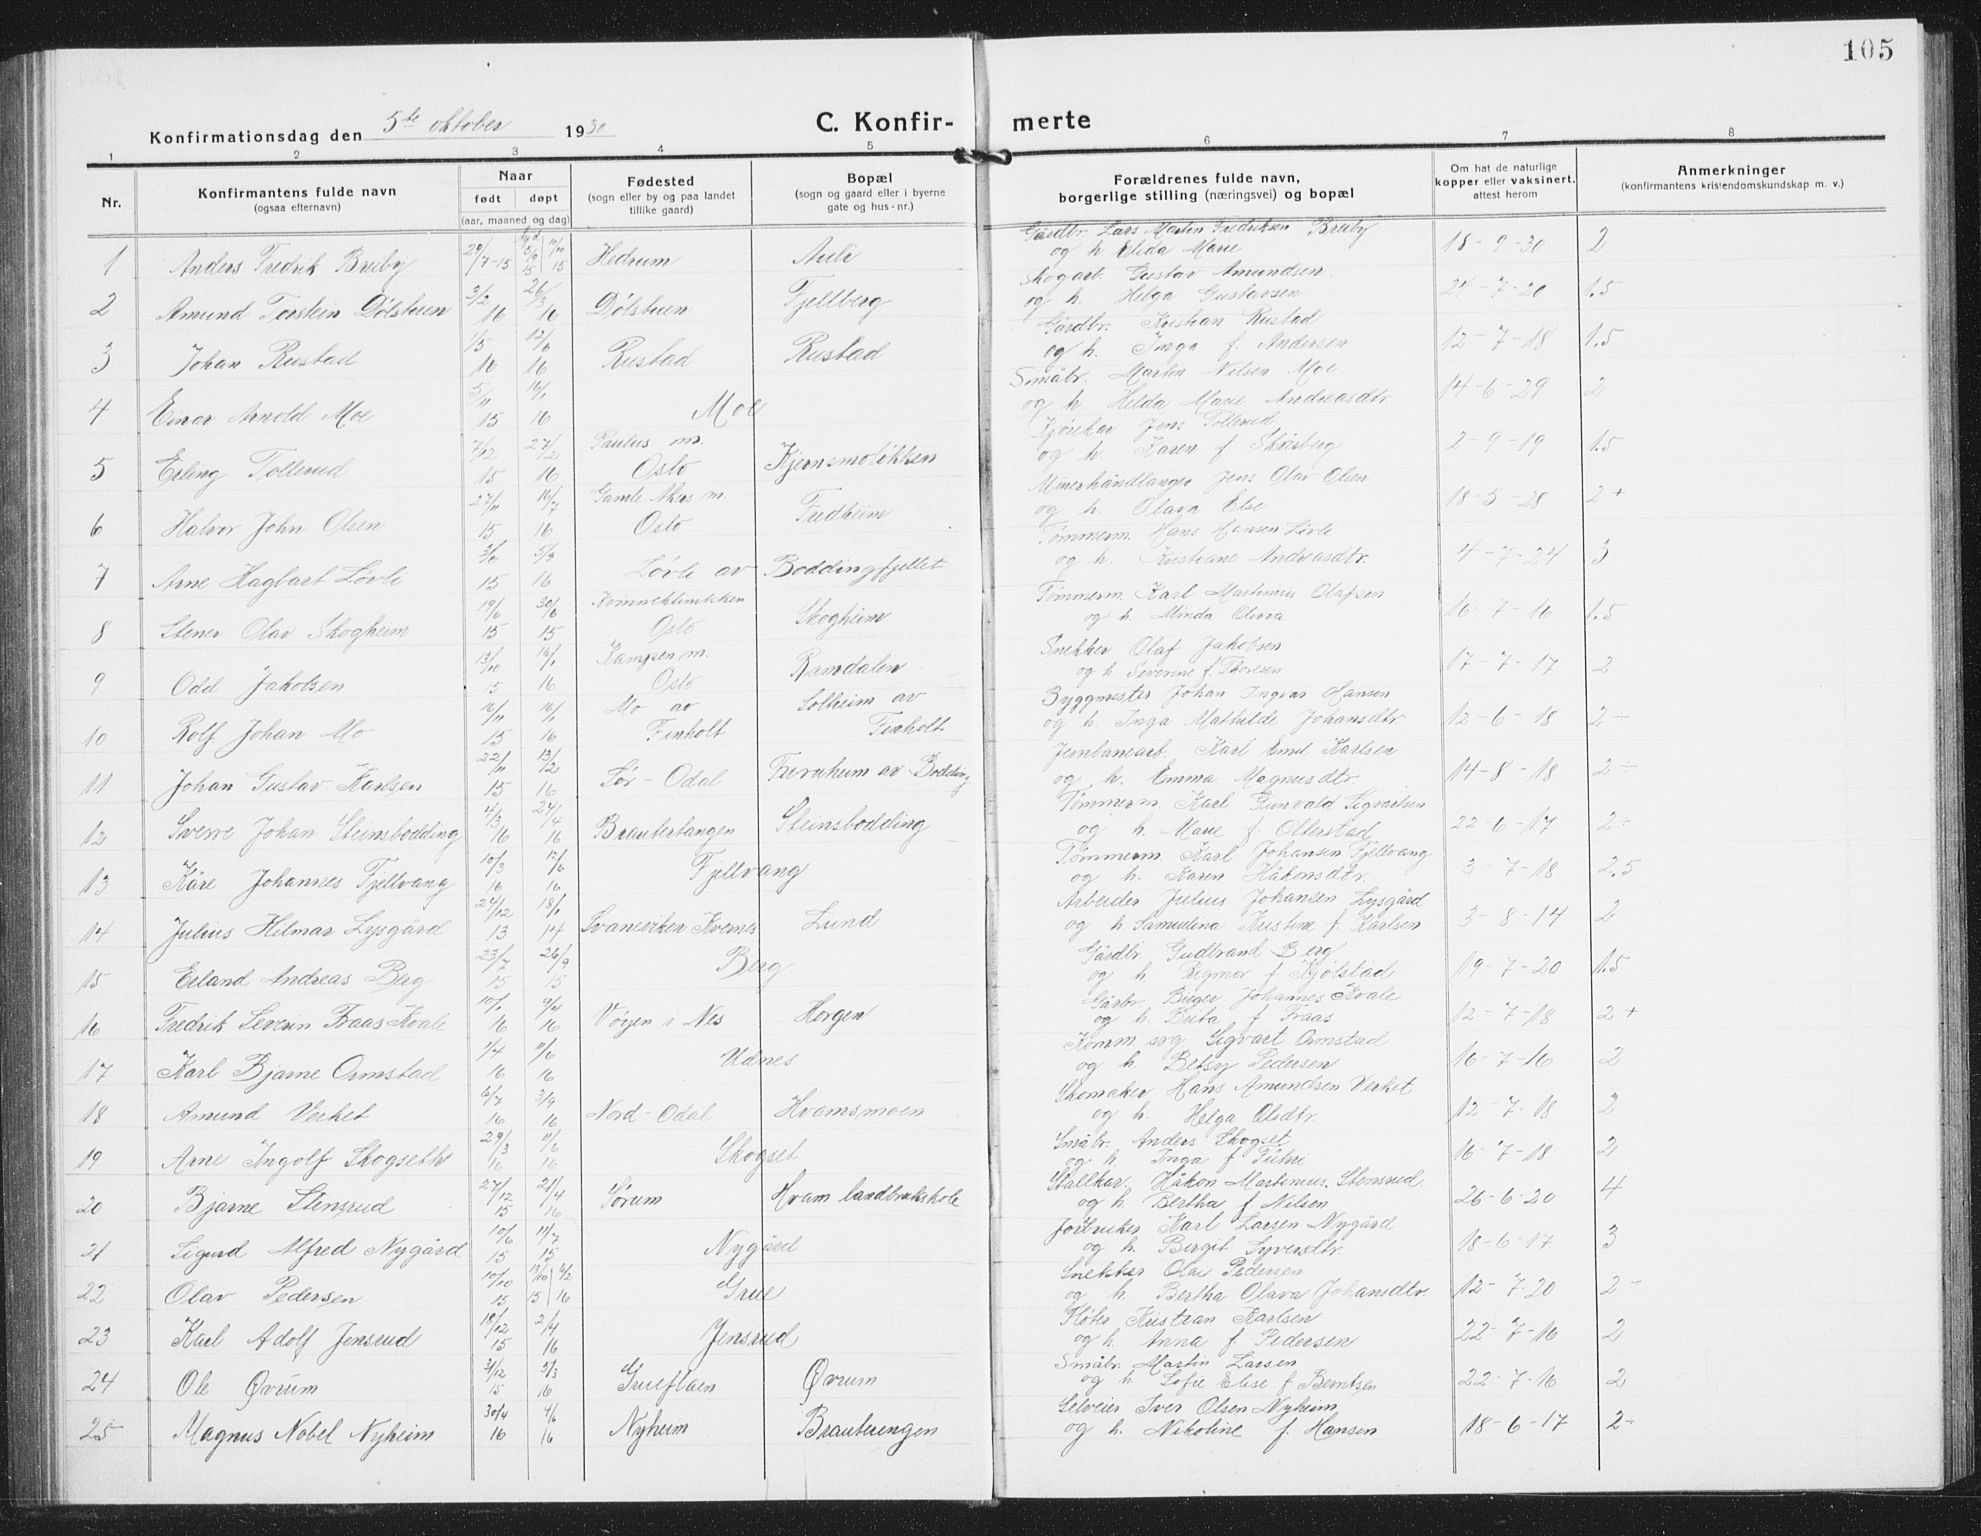 105
Konfirmationsdag den 5te oktober 1930
C. Konfir- merte
1 2 3 4 5 6 7 8
Nr.
Konfirmantens fulde navn
(ogsaa efternavn)
Naar
født døpt
(aar, maaned og dag)
Fødested
(sogn eller by og paa landet
tillike gaard)
Bopæl
(sogn og gaard eller i byerne
gate og hus-nr.)
Forældrenes fulde navn,
borgerlige stilling (næringsvei) og bopæl
Om hat de naturlige
kopper eller vaksinert.
attest herom
Anmerkninger
(konfirmantens kristendomskundskap m. v.)
Gårdbr. Lars Martin Fredriksen Breiby
1 Anders Fredrik Breiby 29/7-15 15 Hedrum Auli og h. Elida Marie 18-9-30 2
Skogarb. Gustav Amundsen
2 Amund Torstein Dølstuen 3/2 16 26/3 16 Dølstuen Fjellberg og h. Helga Gustavsen 24-7-20 1.5
Gårdbr. Kristian Rustad
3 Johan Rustad 1/5 16 12/6 16 Rustad Rustad og h. Inga f. Andersen 12-7-18 1.5
Småbr. Martin Nilsen Moe
4 Einar Arnold Moe 5/11 15 16/1 16 Moe og h. Helda Marie Andreasdtr. 14-6-29 2
Kjørekar Jens Tollerud
5 Erling Tollerud 7/12 15 27/2 16 Paulus m. Oslo Kjernsmoløkken og h. Karen f. Skårberg 2-9-19 1.5
Minerhåndlanger Jens Olav Olsen
6 Halvor John Olsen 27/11 15 16/7 16 Gamle Akers m. Oslo Fredheim og h. Olava Else 18-5-28 2+
Tømmerm. Hans Hansen Løvli
7 Arne Hagbart Løvli 15 5/3 16 Løvli av Boddingfjellet og h. Kristiane Andreasdtr. 4-7-24 3
Tømmerm. Karl Martinius Olafsen
8 Stener Olav Skogheim 19/6 15 30/6 15 Kvinneklinikken Oslo Skogheim og h. Minda Olava 16-7-16 1.5
Snekker Olaf Jakobsen
9 Odd Jakobsen 13/10 15 16/1 16 Kampen m. Oslo Ramdalen og h. Severine f. Thoresen 17-7-17 2
Byggmester Johan Ingvar Hansen
10 Rolf Johan Mo 16/11 15 16/1 16 Mo av Finholt Solheim av Finholt og h. Inga Mathilde Johansdtr. 12-6-18 2÷
Jernbanearb. Karl Emil Karlsen
11 Johan Gustav Karlsen 22/11 15 13/2 16 Sør-Odal Furuheim av Bodding og h. Emma Magnusdtr. 14-8-18 2÷
Tømmerm. Karl Gunvald Sigvartsen
12 Sverre Johan Steinsbodding 4/3 16 24/4 16 Brautertangen Steinsbodding og h. Marie f. Otterstad 22-6-17 2÷
Tømmerm. Karl Johansen Fjellvang
13 Kåre Johannes Fjellvang 10/3 16 12/6 16 Fjellvang og h. Karen Håkonsdtr. 3-7-18 2.5
Arbeider Julius Johansen Lysgård
14 Julius Hilmar Lysgård 24/12 13 18/1 14 Svaneviken Kvernes Lund og h. Samuelina Kristine f. Karlsen 3-8-14 2
Gårdbr. Gudbrand Berg
15 Erland Andreas Berg 23/7 15 26/9 15 Berg og h. Rigmor f. Kjølstad 19-7-20 1.5
Gårbr. Birger Johannes Kvale
16 Fredrik Severin Fraas Kvale 10/1 16 9/4 16 Vøyen i Nes Horgen og h. Berta f. Fraas 12-7-18 2+
Komm. ing Sigvart Ormstad
17 Karl Bjarne Ormstad 1/4 16 11/6 16 Udnes og h. Betsy Pedersen 16-7-16 2
Skomaker Hans Amundsen Verket
18 Amund Verket 6/7 16 3/9 16 Nord-Odal Hvamsmoen og h. Helga Olsdtr. 12-7-18 2
Småbr. Anders Skogset
19 Arne Ingolf Skogseth 29/3 16 11/6 16 Skogset og h. Inga f. 16-7-18 2
Stallkar. Håkon Martinius Stensrud
20 Bjarne Stensrud 27/12 15 21/4 16 Sørum Hvam landbrukskole og h. Bertha f. Nilsen 26-6-20 4
Jorbruker Karl Larsen Nygård
21 Sigurd Alfred Nygård 10/6 15 11/7 15 Nygård og h. Birgit Syversdtr. 18-6-17 3
Snekker Olai Pedersen
22 Olav Pedersen 10/10 15 13/10 15 6/2 16 Grue og h. Bertha Olava Johansdtr. 12-7-20 2÷
Fløter Kristian Karlsen
23 Karl Adolf Jensrud 18/12 15 2/4 16 Jensrud og h. Anna f. Pedersen 22-7-16 2
Småbr. Martin Larsen
24 Ole Øvrum 31/12 15 5/3 16 Grueflaen Øvrum og h. Sofie Elise f. Berntsen 22-7-16 2
Selveier Iver Olsen Nyheim
25 Magnus Nobel Nyheim 30/4 16 4/6 16 Nyheim Brauterengen og h. Nikoline f. Hansen 18-6-17 2÷